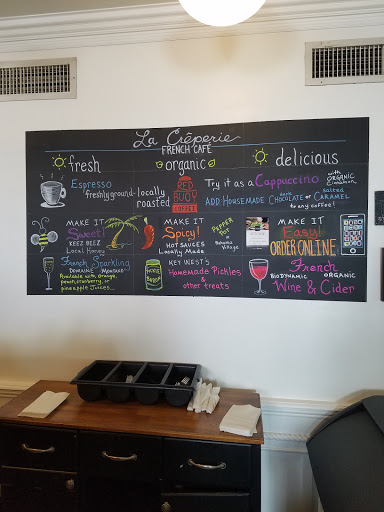 La Crêperie
FRENCH CAFE
fresh organic delicious
Espresso
freshly ground - locally roasted
RED
BUOY
COFFEE
Try it as a Cappuccino with ORGANIC Cinnamon
ADD HOUSEMADE DARK CHOCOLATE or SALTED CARAMEL
to any coffee!
MAKE IT
Sweet!
KEEZ BEEZ
Local Honey
MAKE IT
Spicy!
HOT SAUCES
Locally Made
PEPPER
POT
in
BAHAMA
Village
MAKE IT
Easy!
ORDER ONLINE
French Sparkling
DOMAINE
Available with orange,
peach, cranberry, or
pineapple Juices...
KEY WEST'S
Homemade Pickles
& other treats
French
BIODYNAMIC ORGANIC
Wine & Cider